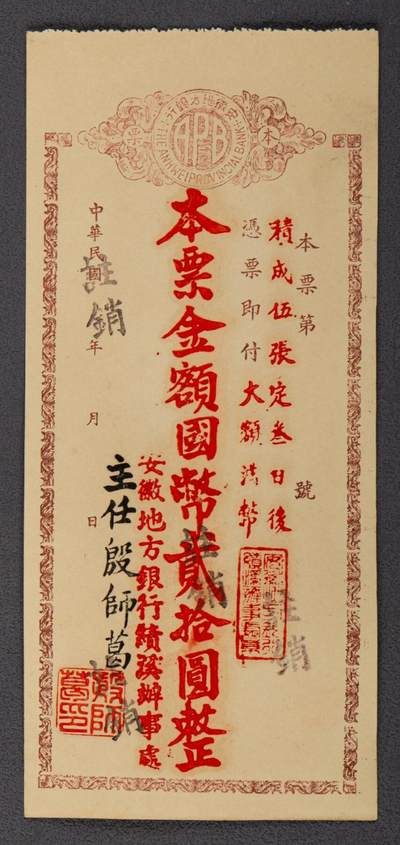 行銀方地徽安
THE ANHWEI PROVINCIAL BANK
APB
本票
本票第　　號
積成伍張定叁日後
憑票即付大額法幣
本票金額國幣貳拾圓整
安徽地方銀行績溪辦事處
主任殷師葛
殷師葛印
中華民國　年　月　日
註銷
註銷
註銷
註銷